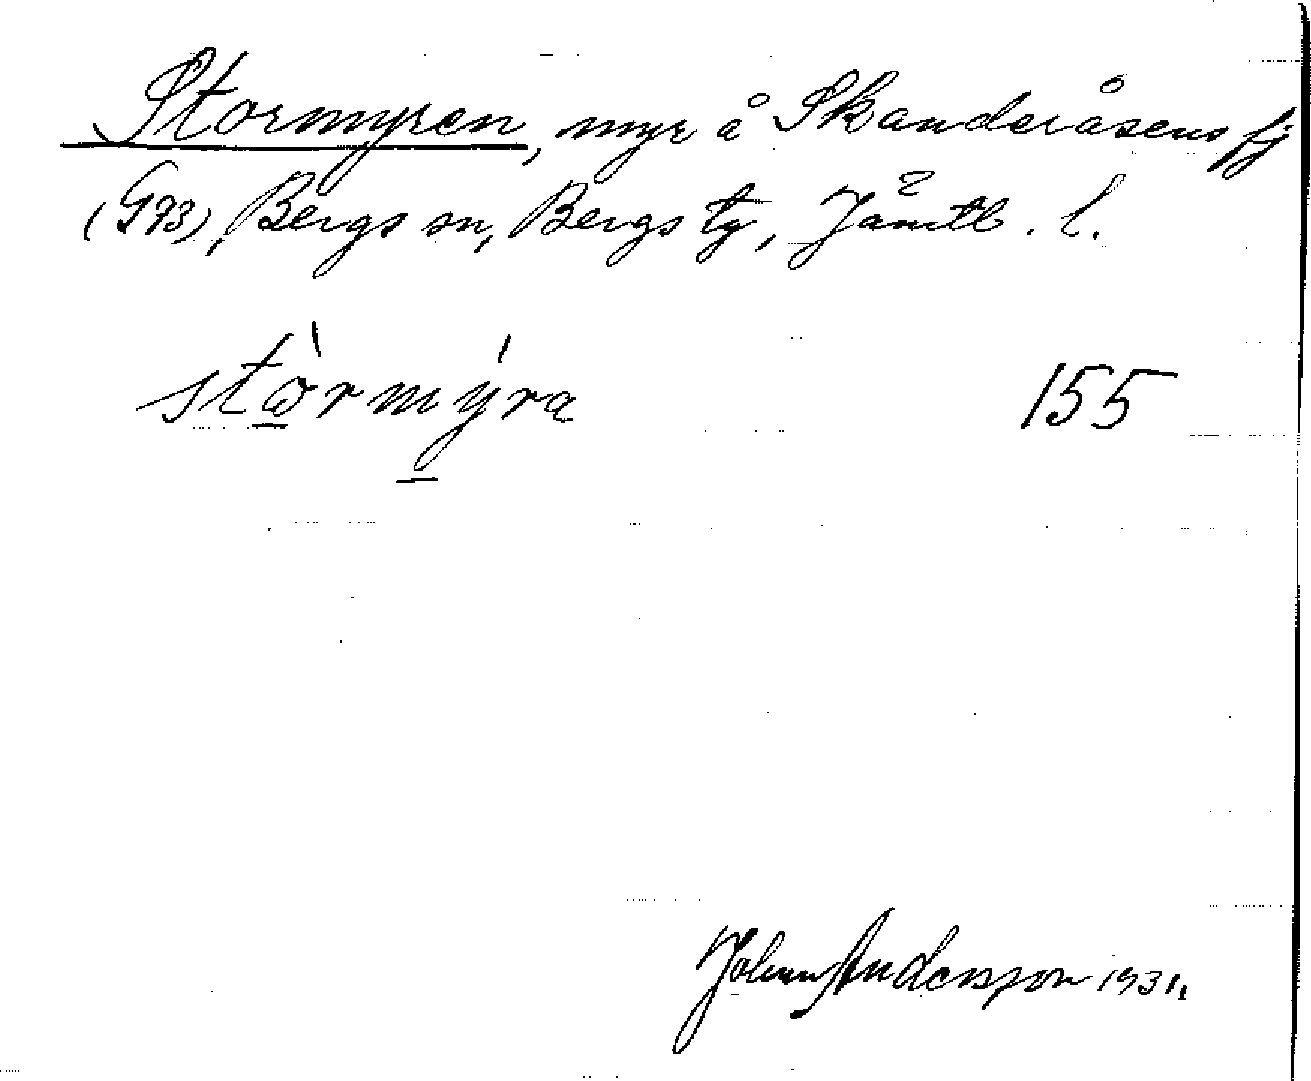 Stormyren, myr å Skanderåsens fj
(G93), Bergs sn, Bergs tg, Jämtl. l.
stòrmýra 155
Johan Andersson 1931.